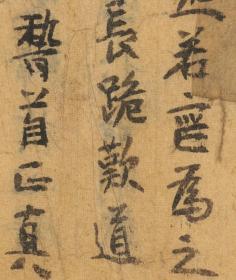 若爲之
長跪歎道
稽首正真